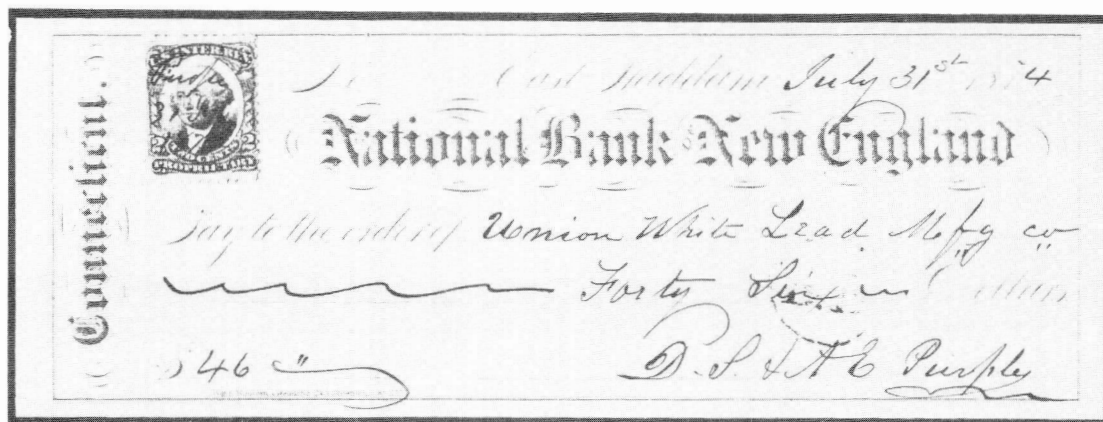 Connecticut.
East Haddam July 31st 1874
National Bank of New England
Pay to the order of Union White Lead Mfg co
Forty Six Dollars
$46 "
D. S. & A E Purple